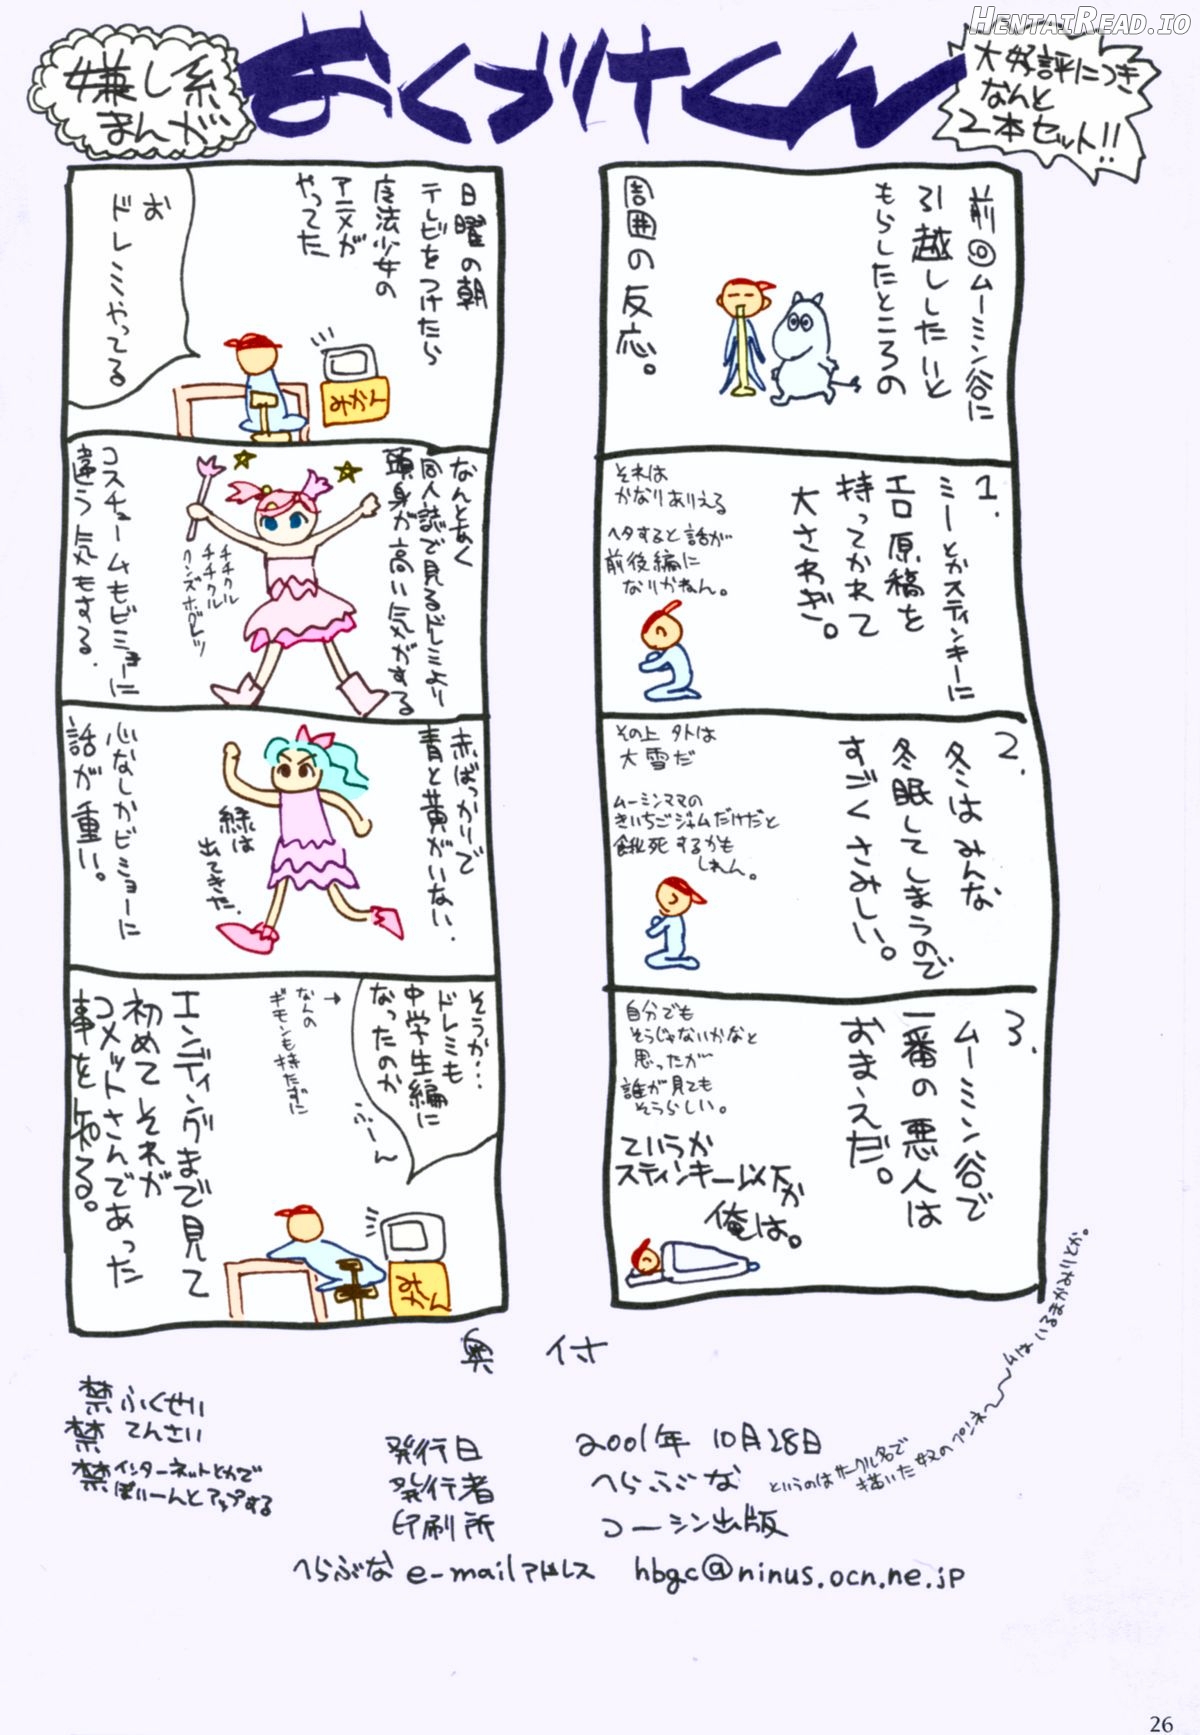 HentaiRead.io
嫌し系
まんが
おくづけくん
大好評につき
なんと
2本セット!!
前回ムーミン谷に
引越ししたいと
もらしたところの
周囲の反応。
1.
ミーとかスティンキーに
エロ原稿を
持ってかれて
大さわぎ。
それは
かなりありえる
ヘタすると話が
前後編に
なりかねん。
2.
冬はみんな
冬眠してしまうので
すごくさみしい。
その上外は
大雪だ
ムーミンママの
きいちごジャムだけだと
餓死するかも
しれん。
3.
ムーミン谷で
一番の悪人は
おまえだ。
自分でも
そうじゃないかなと
思ったが
誰が見ても
そうらしい。
ていうか
スティンキー以下か
俺は。
日曜の朝
テレビをつけたら
魔法少女の
アニメが
やってた
お
ドレミやってる
みかん
なんとなく
同人誌で見るドレミより
頭身が高い気がする
チチクル
チチクル
クンズホグレツ
コスチュームもビミョーに
違う気もする.
赤ばっかりで
青と黄がいない.
緑は
出てきた.
心なしかビミョーに
話が重い。
そうか…
ドレミも
中学生編に
なったのか
ふーん
→
なんの
ギモンも持たずに
エンディングまで見て
初めてそれが
コメットさんであった
事を知る。
みかん
奥付
禁ふくせい
禁てんさい
禁インターネットとかで
ぼいーんとアップする
発行日 2001年 10月28日
発行者 へらぶな
というのはサークル名で
描いた奴のペンネ〜〜ムはいるまかみりとか。
印刷所 コーシン出版
へらぶな e-mailアドレス hbgc@ninus.ocn.ne.jp
26